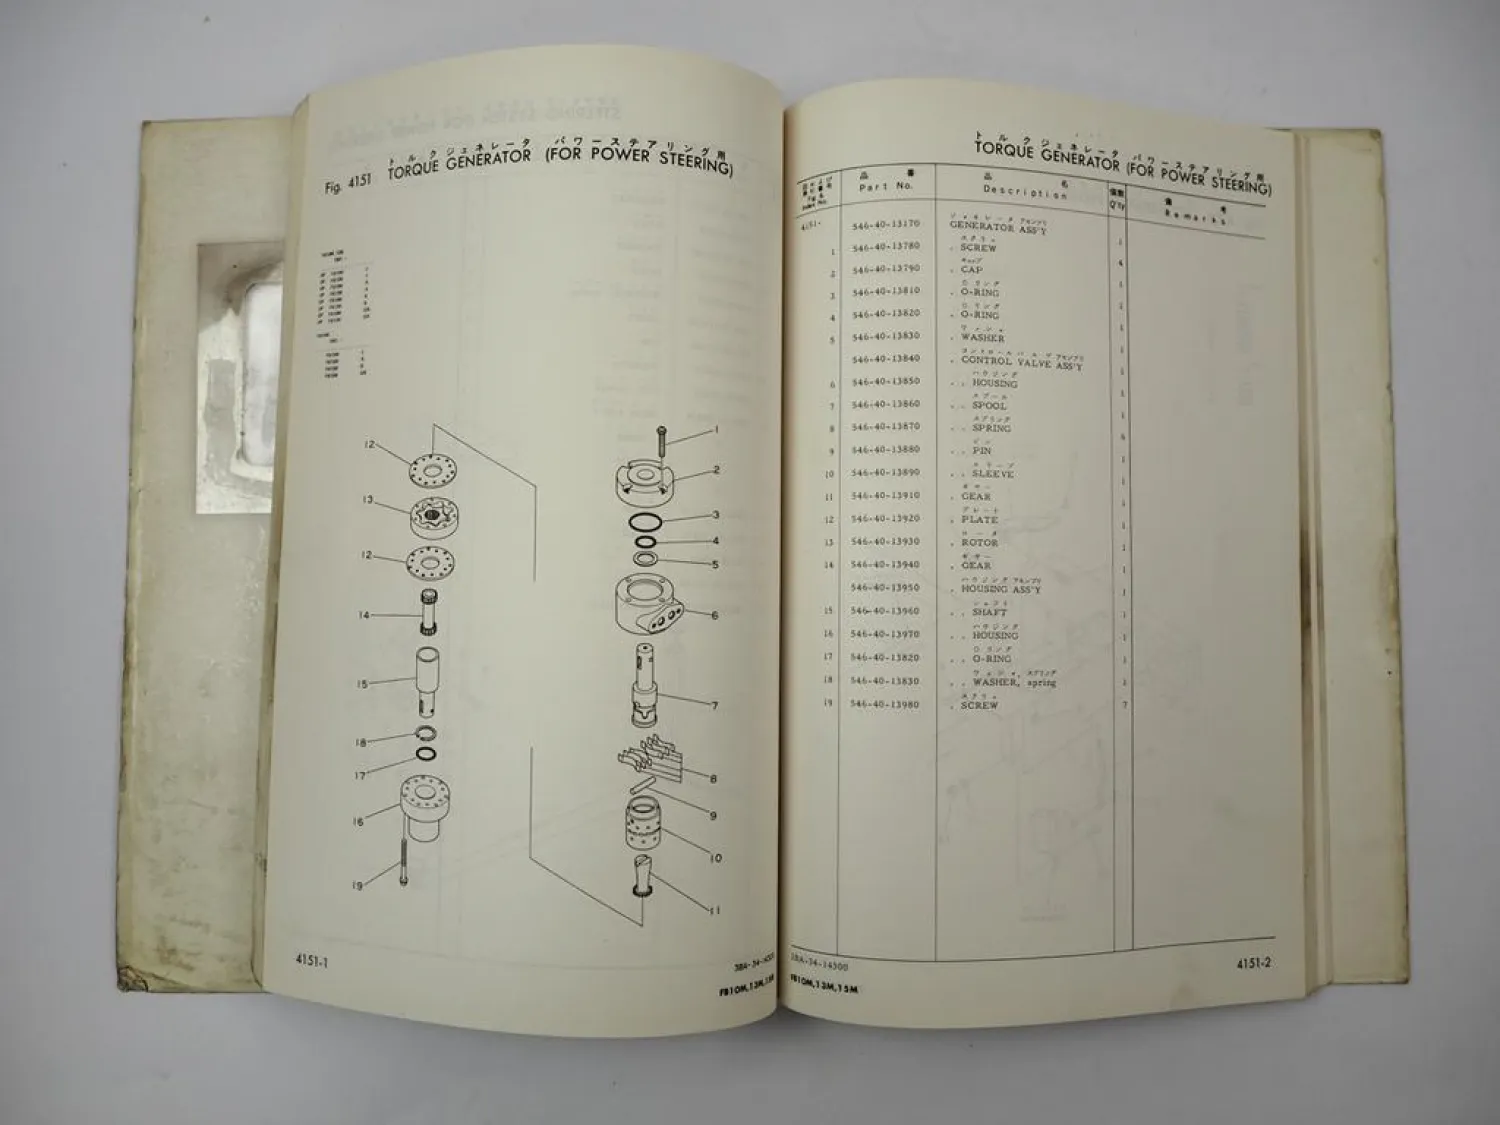 トルクジェネレータ パワーステアリング用
Fig. 4151 TORQUE GENERATOR (FOR POWER STEERING)
1
12
2
13
3
4
12
5
14
6
15
7
18
8
17
9
16
10
19
11
4151-1
FB10M,13M,15M
トルクジェネレータ パワーステアリング用
TORQUE GENERATOR (FOR POWER STEERING)
品番 品名 個数 備考
Part No. Description Q'ty Remarks
ジェネレータ アセンブリ
4151- 546-40-13170 GENERATOR ASS'Y 1
スクリュ
1 546-40-13780 . SCREW 4
キャップ
2 546-40-13790 . CAP 1
O リング
3 546-40-13810 . O-RING
O リング
4 546-40-13820 . O-RING 1
ワッシャ
5 546-40-13830 . WASHER 1
コントロール バルブ アセンブリ
546-40-13840 . CONTROL VALVE ASS'Y 1
ハウジング
6 546-40-13850 . . HOUSING 1
スプール
7 546-40-13860 . . SPOOL 1
スプリング
8 546-40-13870 . . SPRING 6
ピン
9 546-40-13880 . . PIN 1
スリーブ
10 546-40-13890 . . SLEEVE 1
ギヤー
11 546-40-13910 . GEAR 1
プレート
12 546-40-13920 . PLATE
ロータ
13 546-40-13930 . ROTOR 1
ギヤー
14 546-40-13940 . GEAR 1
ハウジング アセンブリ
546-40-13950 . HOUSING ASS'Y 1
シャフト
15 546-40-13960 . . SHAFT 1
ハウジング
16 546-40-13970 . . HOUSING 1
O リング
17 546-40-13820 . . O-RING 1
ワッシャ, スプリング
18 546-40-13830 . . WASHER, spring 1
スクリュ
19 546-40-13980 . SCREW 7
38A-34-14300
FB10M,13M,15M
4151-2